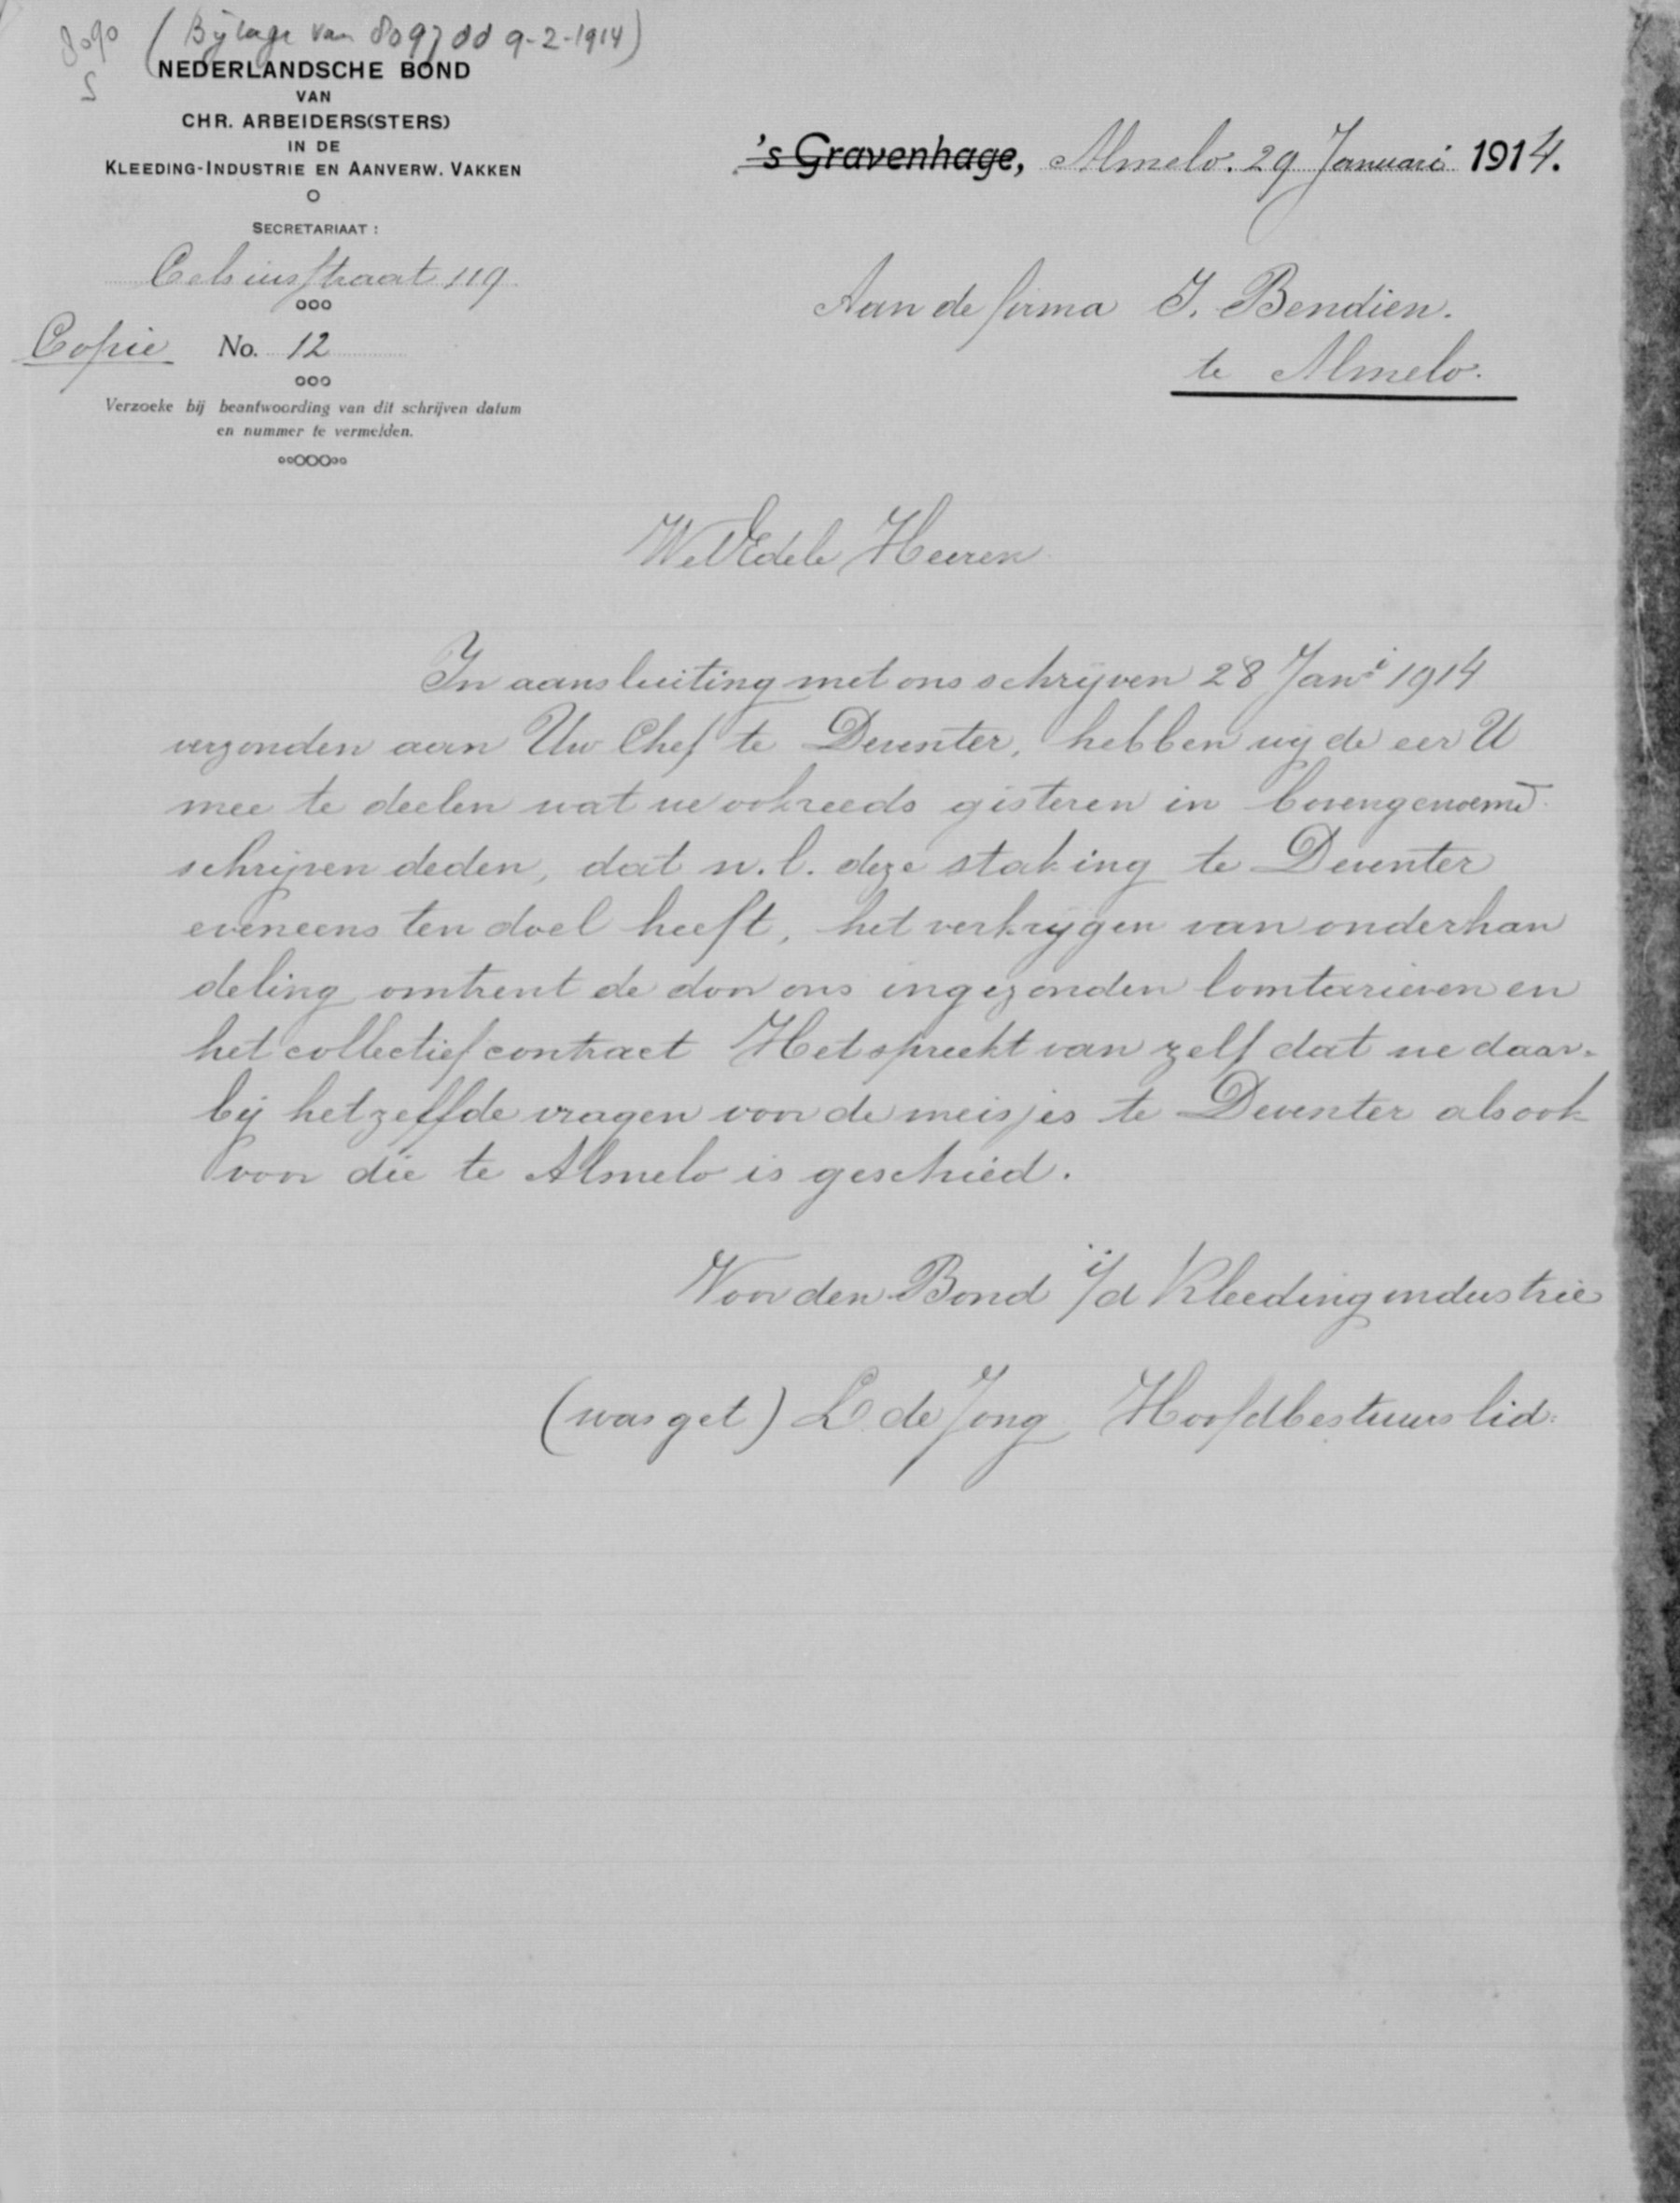 8090 (Bijlage van 8097 dd 9-2-1914)
S
NEDERLANDSCHE BOND
VAN
CHR. ARBEIDERS(STERS)
IN DE
KLEEDING-INDUSTRIE EN AANVERW. VAKKEN
SECRETARIAAT:
Celsiusstraat 119.
Copie No. 12
Verzoeke bij beantwoording van dit schrijven datum
en nummer te vermelden.
's Gravenhage, Almelo. 29 Januari 1914.
Aan de firma J. Bendien.
te Almelo.
WelEdele Heeren
In aansluiting met ons schrijven 28 Jani 1914
verzonden aan Uw Chef te Deventer, hebben wij de eer U
mee te deelen wat we ook reeds gisteren in bovengenoemd
schrijven deden, dat n.l. deze staking te Deventer
eveneens ten doel heeft, het verkrijgen van onderhan
deling omtrent de door ons ingezonden loontarieven en
het collectief contract Het spreekt van zelf dat we daar-
bij hetzelfde vragen voor de meisjes te Deventer als ook
voor die te Almelo is geschied.
Voor den Bond i/d Kleedingindustrie
(was get) L de Jong Hoofdbestuurslid.